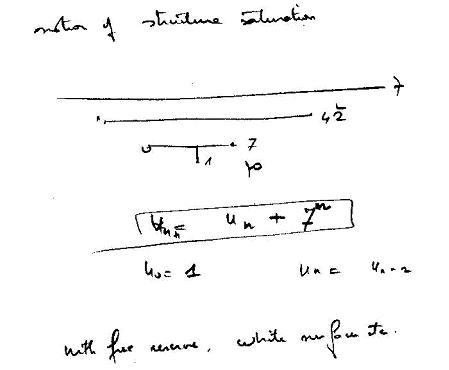 notion of structure saturation
7
42
7
1
u n + 7 n
u0 = 1 un = un-2
with free reserve, white surface etc.